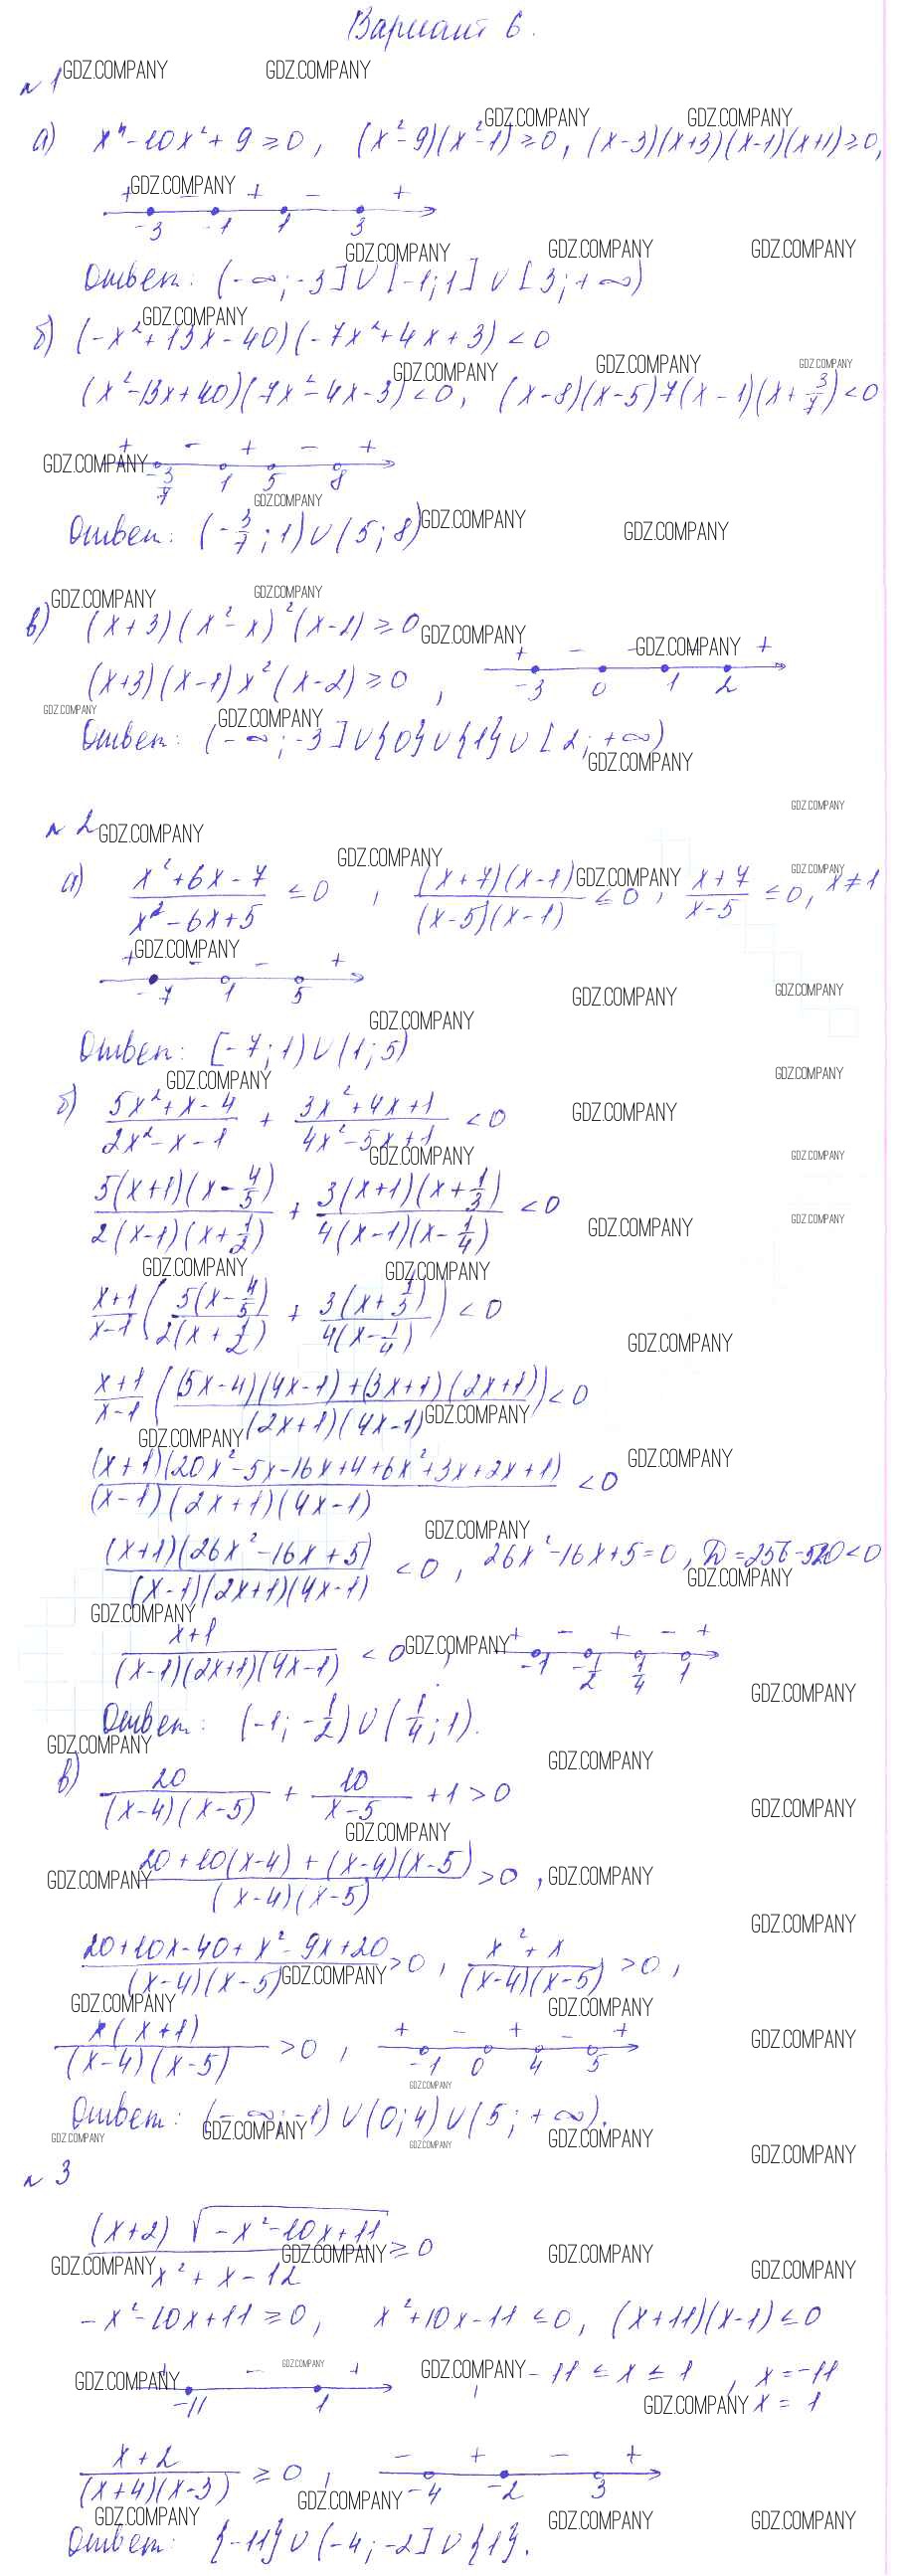 Вариант 6.
№ 1
а) x⁴ - 10x² + 9 ≥ 0, (x² - 9)(x² - 1) ≥ 0, (x-3)(x+3)(x-1)(x+1) ≥ 0,
+ - + - +
-3 -1 1 3
Ответ: (-∞; -3] ∪ [-1; 1] ∪ [3; +∞)
б) (-x² + 13x - 40)(-7x² + 4x + 3) < 0
(x² - 13x + 40)(7x² - 4x - 3) < 0, (x-8)(x-5)7(x-1)(x+3/7) < 0
+ - + - +
-3/7 1 5 8
Ответ: (-3/7; 1) ∪ (5; 8)
в) (x+3)(x² - x)²(x-2) ≥ 0
(x+3)(x-1)x²(x-2) ≥ 0,
+ - - - +
-3 0 1 2
Ответ: (-∞; -3] ∪ {0} ∪ {1} ∪ [2; +∞)
№ 2
а) (x² + 6x - 7)/(x² - 6x + 5) ≤ 0, (x+7)(x-1)/((x-5)(x-1)) ≤ 0, (x+7)/(x-5) ≤ 0, x ≠ 1
+ - - +
-7 1 5
Ответ: [-7; 1) ∪ (1; 5)
б) (5x² + x - 4)/(2x² - x - 1) + (3x² + 4x + 1)/(4x² - 5x + 1) < 0
5(x+1)(x-4/5)/(2(x-1)(x+1/2)) + 3(x+1)(x+1/3)/(4(x-1)(x-1/4)) < 0
(x+1)/(x-1) (5(x-4/5)/(2(x+1/2)) + 3(x+1/3)/(4(x-1/4))) < 0
(x+1)/(x-1) (((5x-4)(4x-1)+(3x+1)(2x+1))/((2x+1)(4x-1))) < 0
(x+1)(20x² - 5x - 16x + 4 + 6x² + 3x + 2x + 1)/((x-1)(2x+1)(4x-1)) < 0
(x+1)(26x² - 16x + 5)/((x-1)(2x+1)(4x-1)) < 0, 26x² - 16x + 5 = 0, D = 256 - 520 < 0
(x+1)/((x-1)(2x+1)(4x-1)) < 0,
+ - + - +
-1 -1/2 1/4 1
Ответ: (-1; -1/2) ∪ (1/4; 1).
в) 20/((x-4)(x-5)) + 10/(x-5) + 1 > 0
(20 + 10(x-4) + (x-4)(x-5))/((x-4)(x-5)) > 0,
(20 + 10x - 40 + x² - 9x + 20)/((x-4)(x-5)) > 0, (x² + x)/((x-4)(x-5)) > 0,
x(x+1)/((x-4)(x-5)) > 0,
+ - + - +
-1 0 4 5
Ответ: (-∞; -1) ∪ (0; 4) ∪ (5; +∞).
№ 3
(x+2)√(-x² - 10x + 11)/(x² + x - 12) ≥ 0
-x² - 10x + 11 ≥ 0, x² + 10x - 11 ≤ 0, (x+11)(x-1) ≤ 0
+ - +
-11 1
, -11 ≤ x ≤ 1, x = -11
x = 1
(x+2)/((x+4)(x-3)) ≥ 0,
- + - +
-4 -2 3
Ответ: {-11} ∪ (-4; -2] ∪ {1}.
GDZ.COMPANY